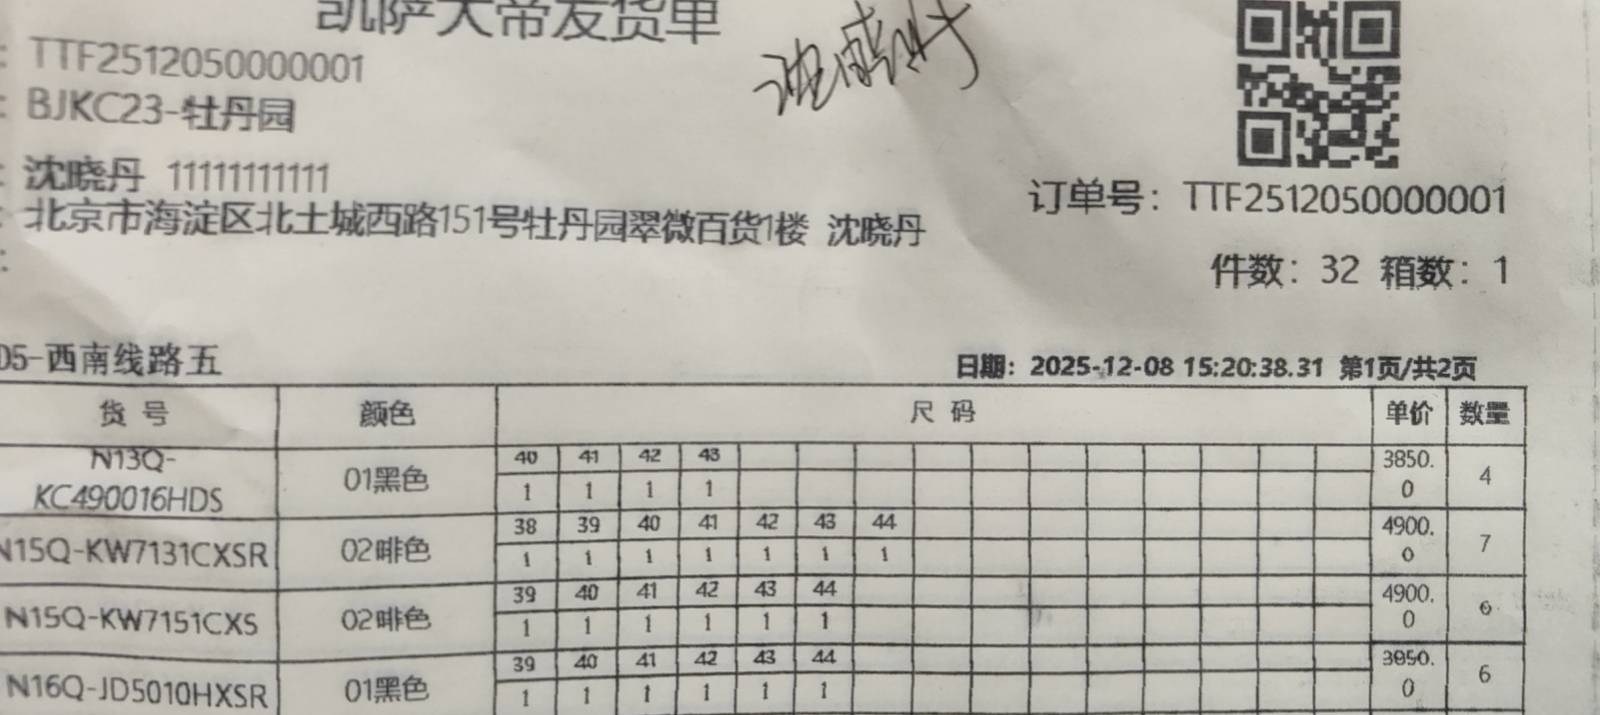 凯萨大帝发货单
: TTF2512050000001
: BJKC23-牡丹园
: 沈晓丹 11111111111
: 北京市海淀区北土城西路151号牡丹园翠微百货1楼 沈晓丹
:
订单号: TTF2512050000001
件数: 32 箱数: 1
05-西南线路五
日期: 2025-12-08 15:20:38.31 第1页/共2页
货号 颜色 尺码 单价 数量
N13Q-KC490016HDS 01黑色 40 41 42 43 3850.0 4
1 1 1 1
N15Q-KW7131CXSR 02啡色 38 39 40 41 42 43 44 4900.0 7
1 1 1 1 1 1 1
N15Q-KW7151CXS 02啡色 39 40 41 42 43 44 4900.0 6
1 1 1 1 1 1
N16Q-JD5010HXSR 01黑色 39 40 41 42 43 44 3850.0 6
1 1 1 1 1 1